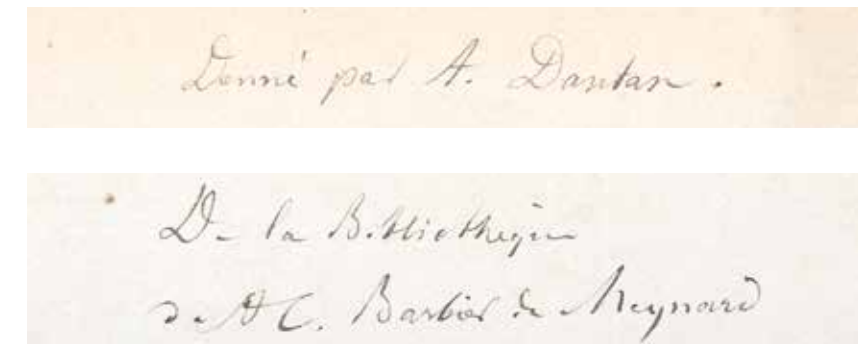 Donné par A. Dantan.
De la Bibliothèque
de A C. Barbier de Meynard